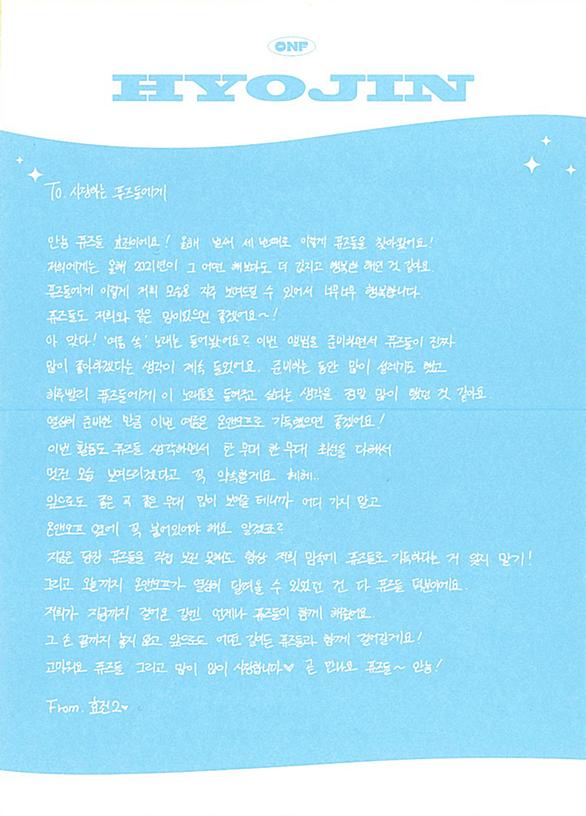 ONF
HYOJIN
To. 사랑하는 퓨즈들에게
안뇽 퓨즈들 효진이에요! 올해 벌써 세 번째로 이렇게 퓨즈들을 찾아왔어요!
저희에게는 올해 2021년이 그 어떤 해보다도 더 값지고 행복한 해인 것 같아요.
퓨즈들에게 이렇게 저희 모습을 자주 보여드릴 수 있어서 너무너무 행복합니다.
퓨즈들도 저희와 같은 맘이었으면 좋겠어요~!
아 맞다! '여름 쏙' 노래는 들어봤어요? 이번 앨범을 준비하면서 퓨즈들이 진짜
많이 좋아하겠다는 생각이 계속 들었어요. 준비하는 동안 많이 설레기도 했고
하루빨리 퓨즈들에게 이 노래들을 들려주고 싶다는 생각을 정말 많이 했던 것 같아요.
열심히 준비한 만큼 이번 여름은 온앤오프로 가득했으면 좋겠어요!
이번 활동도 퓨즈들 생각하면서 한 무대 한 무대 최선을 다해서
멋진 모습 보여드리겠다고 꼭 약속할게요 헤헤..
앞으로도 좋은 곡 좋은 무대 많이 보여줄 테니까 어디 가지 말고
온앤오프 옆에 꼭 붙어있어야 해요 알겠죠?
지금은 당장 퓨즈들을 직접 보진 못해도 항상 저희 맘속에 퓨즈들로 가득하다는 거 잊지 말기!
그리고 오늘까지 온앤오프가 열심히 달려올 수 있었던 건 다 퓨즈들 덕분이에요.
저희가 지금까지 걸어온 길엔 언제나 퓨즈들이 함께 해줬어요.
그 손 끝까지 놓지 않고 앞으로도 어떤 길이든 퓨즈들과 함께 걸어갈게요!
고마워요 퓨즈들 그리고 많이 많이 사랑합니다♥ 곧 만나요 퓨즈들~ 안뇽!
From. 효진2♥